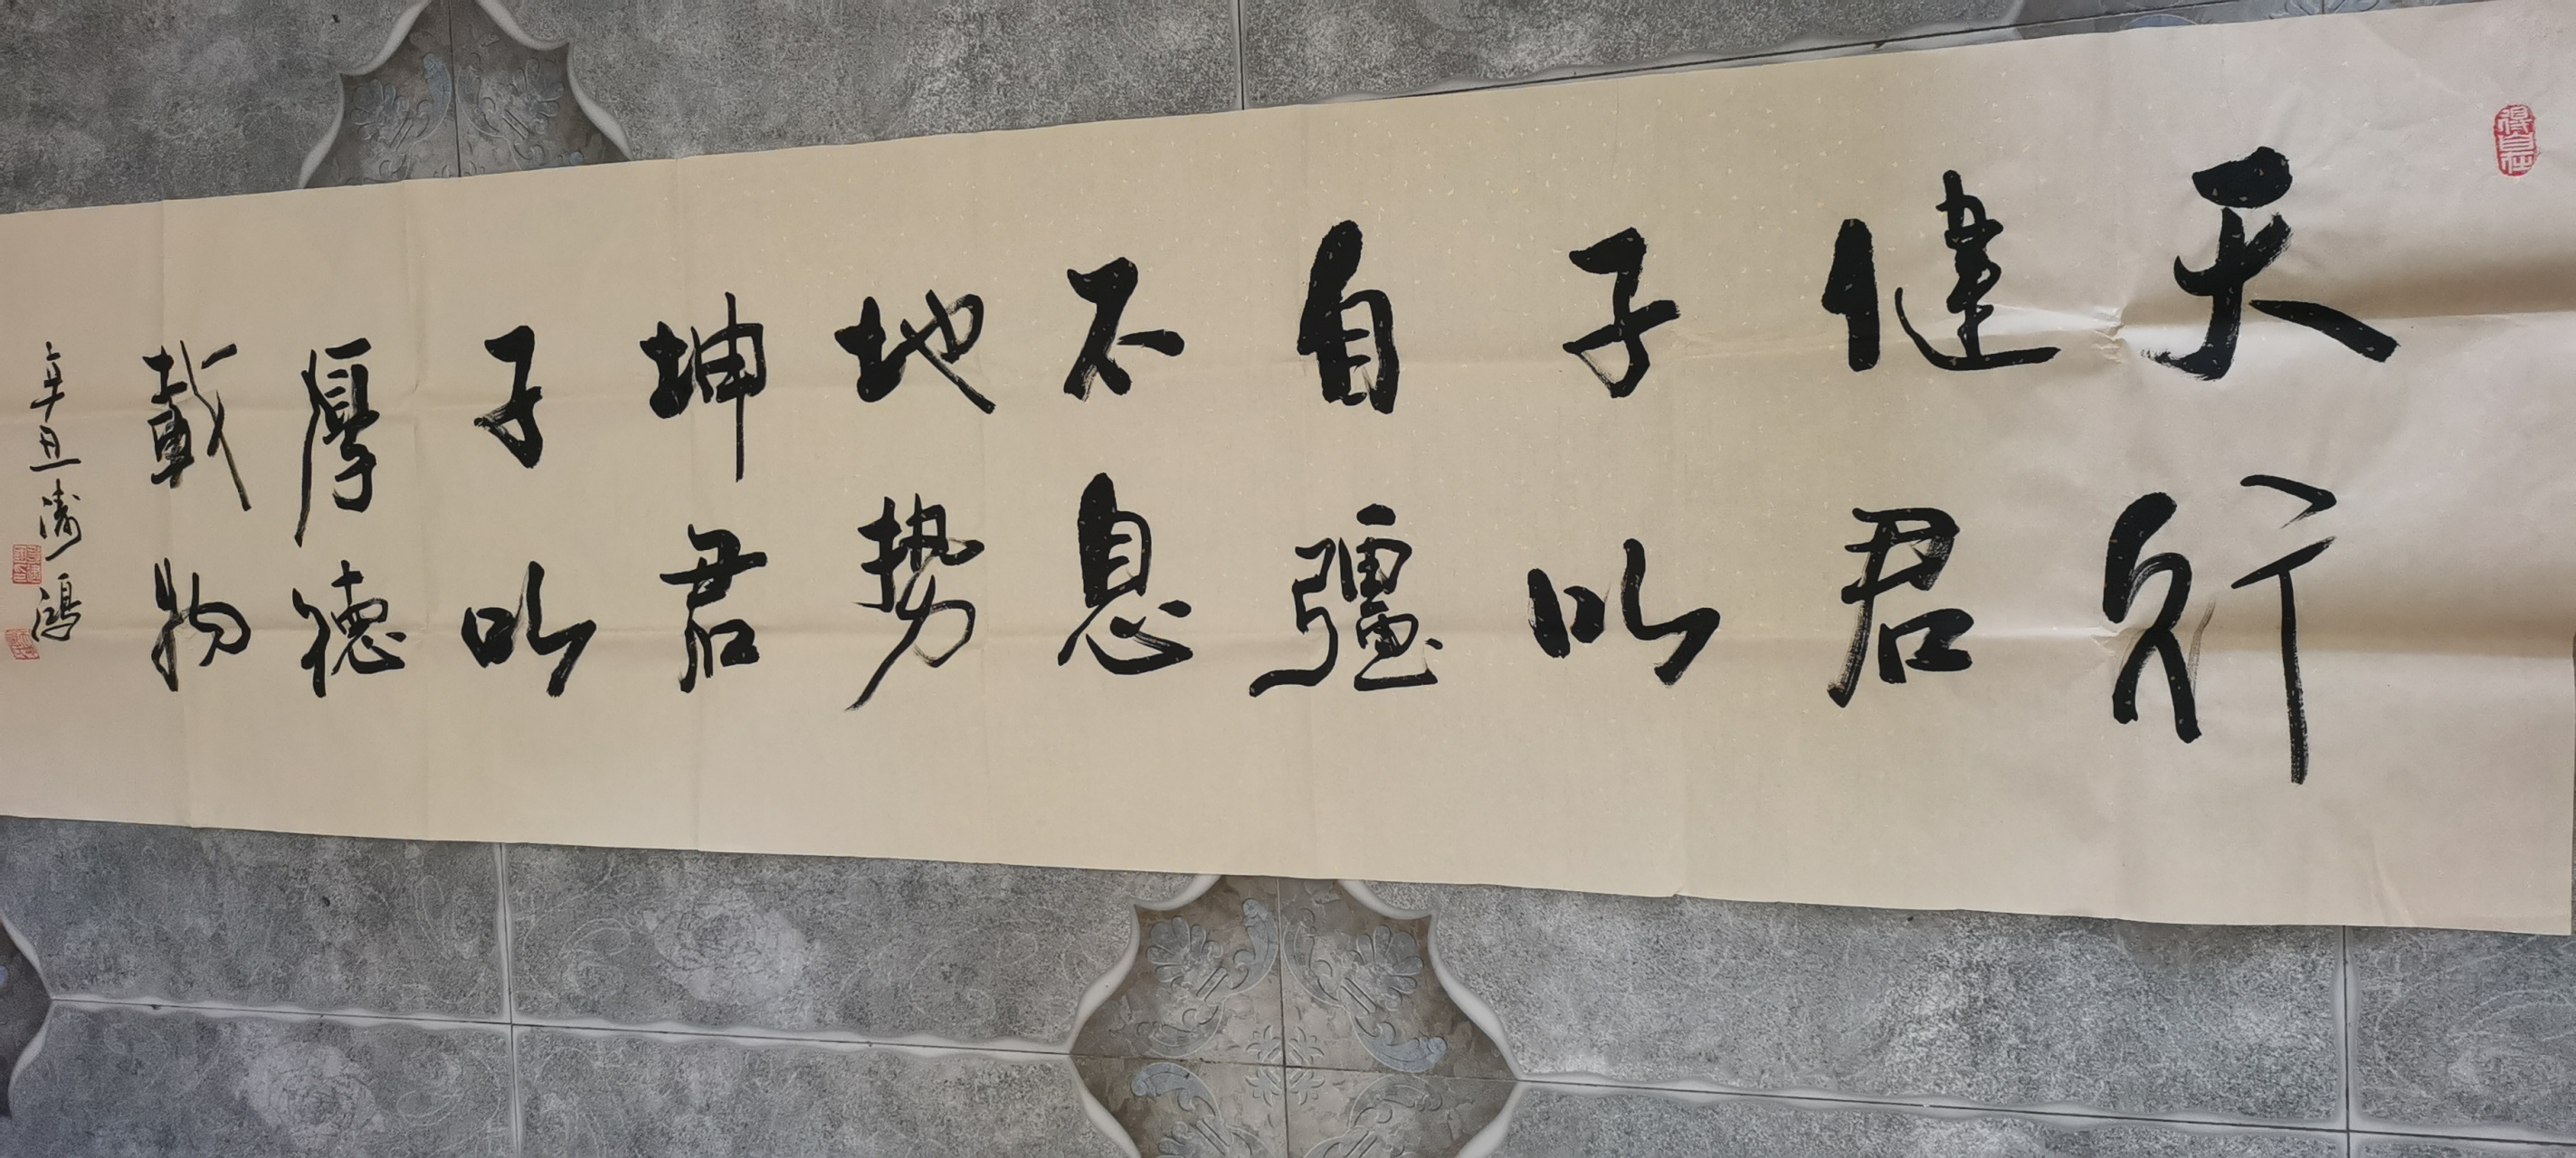 得自在
天行
健君
子以
自彊
不息
地势
坤君
子以
厚德
载物
辛丑涛鸿